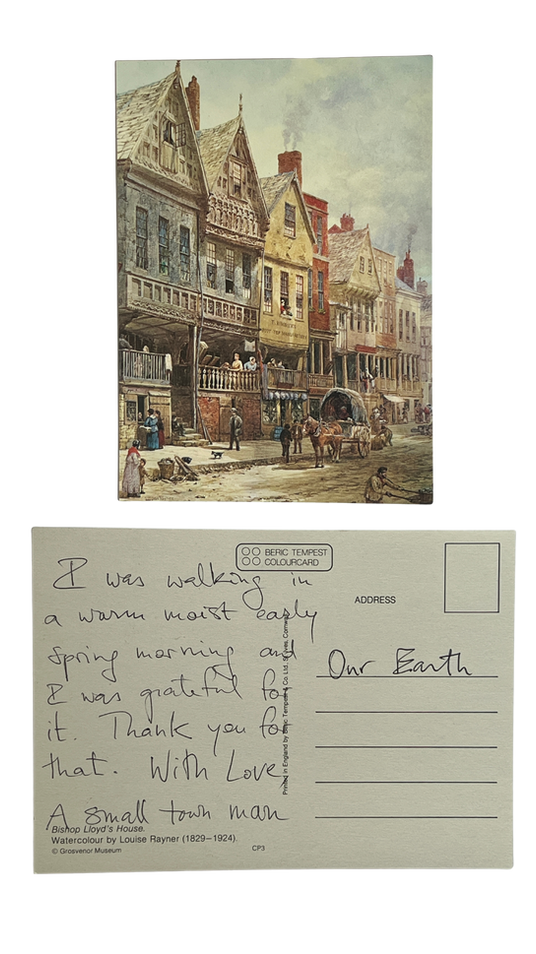 BERIC TEMPEST
COLOURCARD
I was walking in
a warm moist early
spring morning and
I was grateful for
it. Thank you for
that. With Love,
A small town man
Bishop Lloyd's House.
Watercolour by Louise Rayner (1829–1924).
© Grosvenor Museum
CP3
Printed in England by Beric Tempest & Co. Ltd. St. Ives, Cornwall
ADDRESS
Our Earth